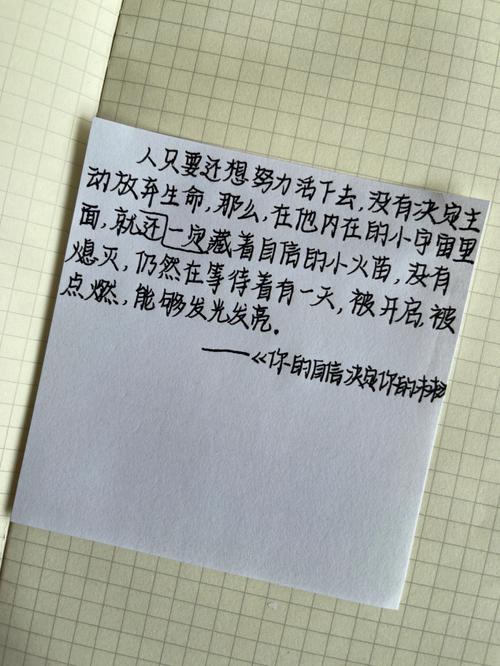 人只要还想努力活下去，没有决定主
动放弃生命，那么，在他内在的小宇宙里
面，就还一定藏着自信的小火苗，没有
熄灭，仍然在等待着有一天，被开启，被
点燃，能够发光发亮。
——《你的自信决定你的